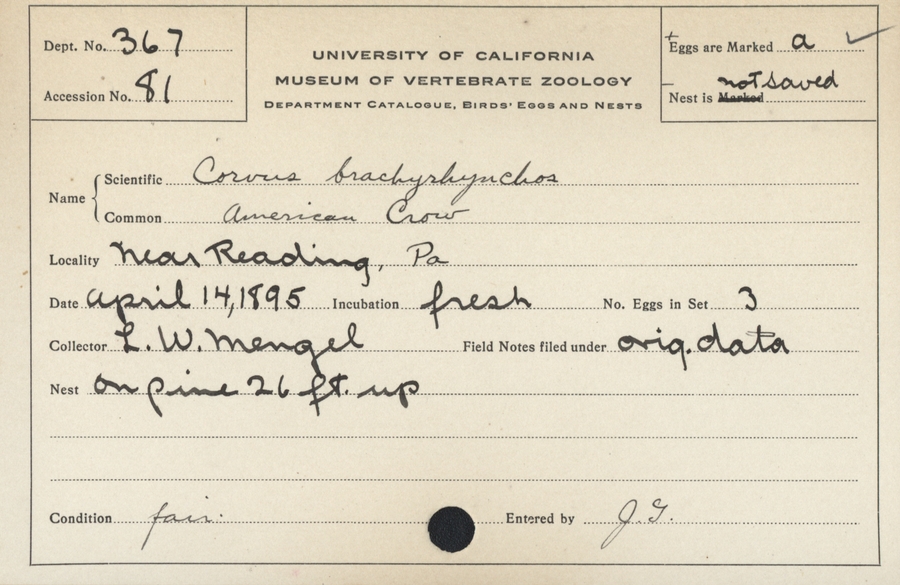 Dept. No. 367
Accession No. 81
UNIVERSITY OF CALIFORNIA
MUSEUM OF VERTEBRATE ZOOLOGY
DEPARTMENT CATALOGUE, BIRDS' EGGS AND NESTS
Eggs are Marked a ✓
Nest is Marked not saved
Name { Scientific Corvus brachyrhynchos
Common American Crow
Locality Near Reading, Pa
Date April 14, 1895 Incubation fresh No. Eggs in Set 3
Collector L. W. Mengel Field Notes filed under orig. data
Nest on pine 26 ft. up
Condition fair. Entered by J. G.